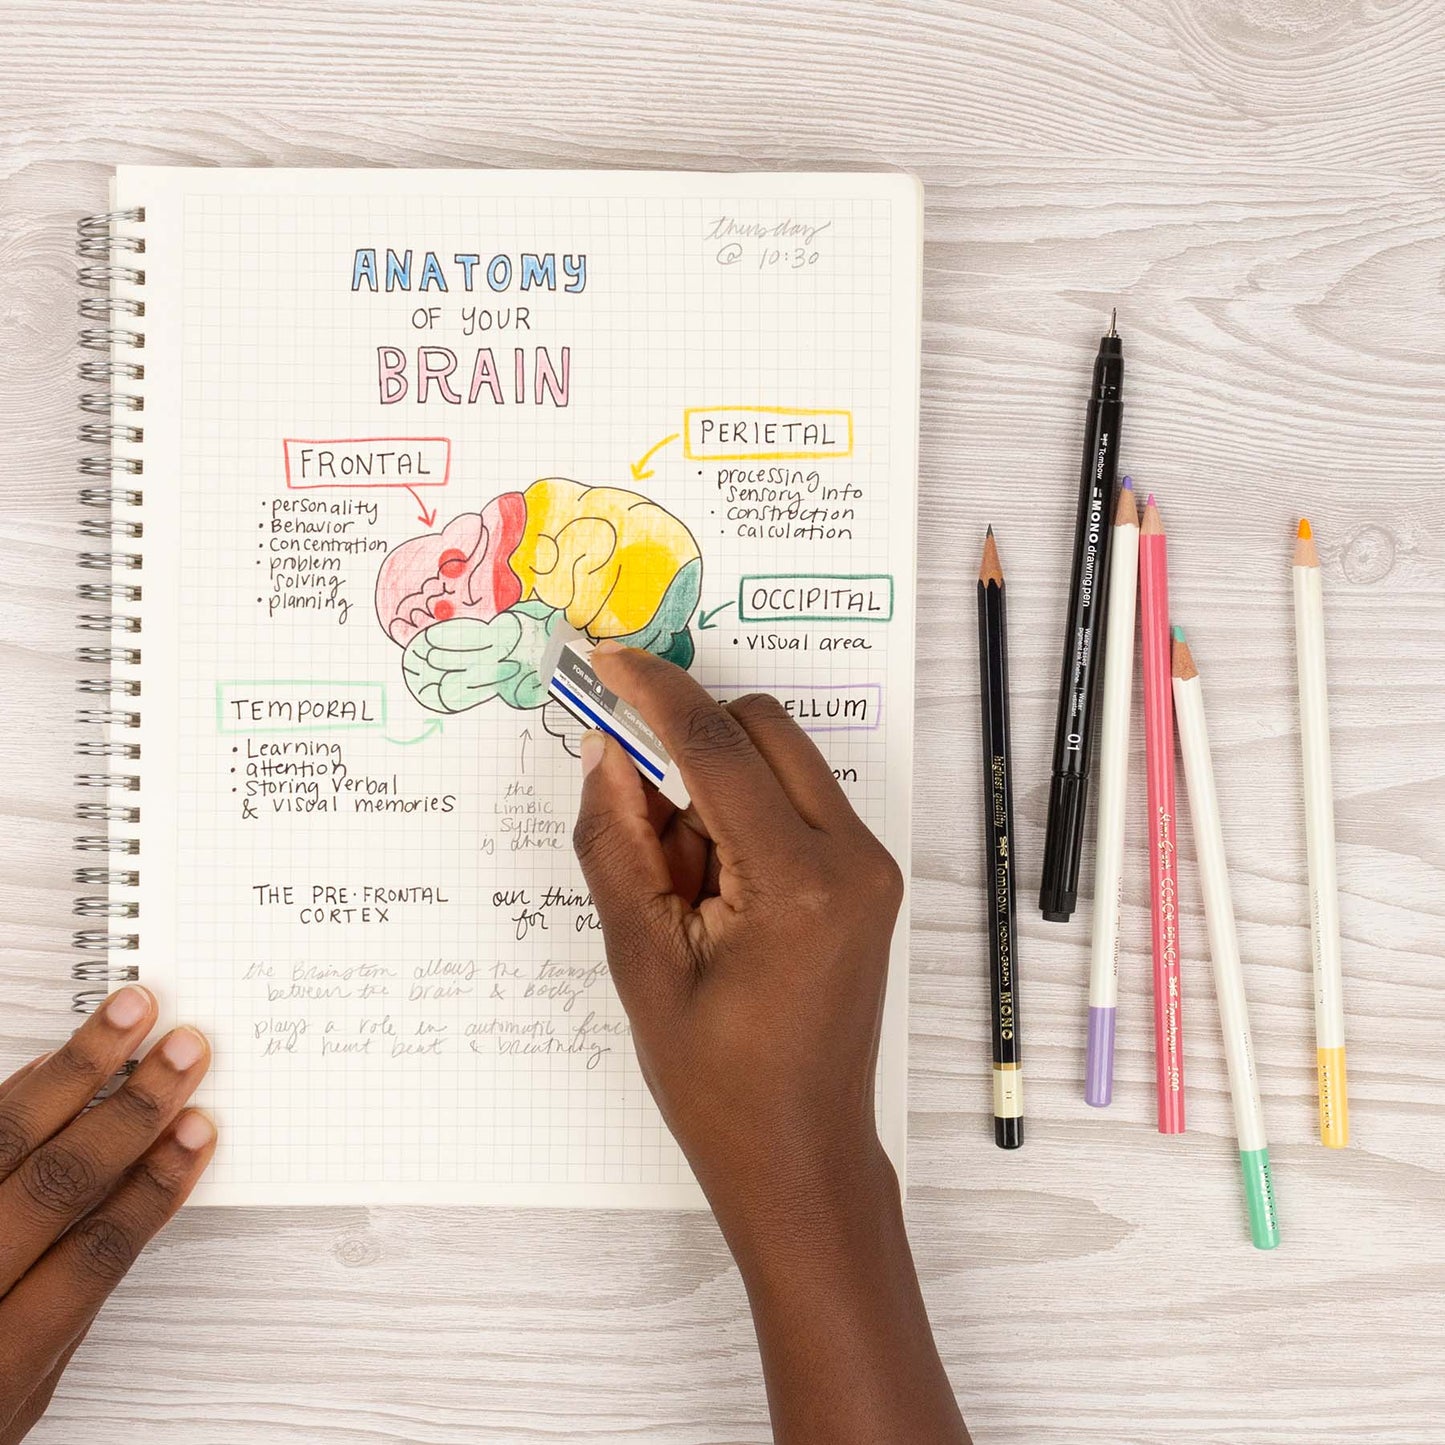 thursday
@ 10:30
ANATOMY
OF YOUR
BRAIN
FRONTAL
• personality
• Behavior
• Concentration
• problem
solving
• planning
PERIETAL
• processing
sensory info
• construction
• calculation
OCCIPITAL
• visual area
TEMPORAL
• Learning
• attention
• Storing verbal
& visual memories
ELLUM
on
the
LIMBIC
System
is
THE PRE-FRONTAL
CORTEX
our thin
for
the Brainstem allows the transfe
between the brain & Body
plays a role in automatic func
the heart beat & breathing
FOR INK
Tombow
FOR PENCIL
Tombow MONO drawing pen
Water-based
pigment ink
Water
resistant
01
highest quality Tombow <MONO-GRAPH> MONO
COLOR PENCIL Tombow 1500